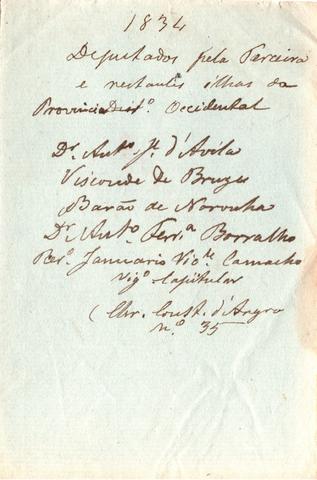 1834
Deputados pela Terceira
e restantes ilhas da
Provincia Dist.º Occidental
Dr. Antº Jº d'Avila
Visconde de Bruges
Barão de Noronha
Dr. Antº. Ferrª Borralho
Rev.º Januario Vic.te Camacho
Vigº Capitular
(Chr. Const. d'Angra
n.º 35